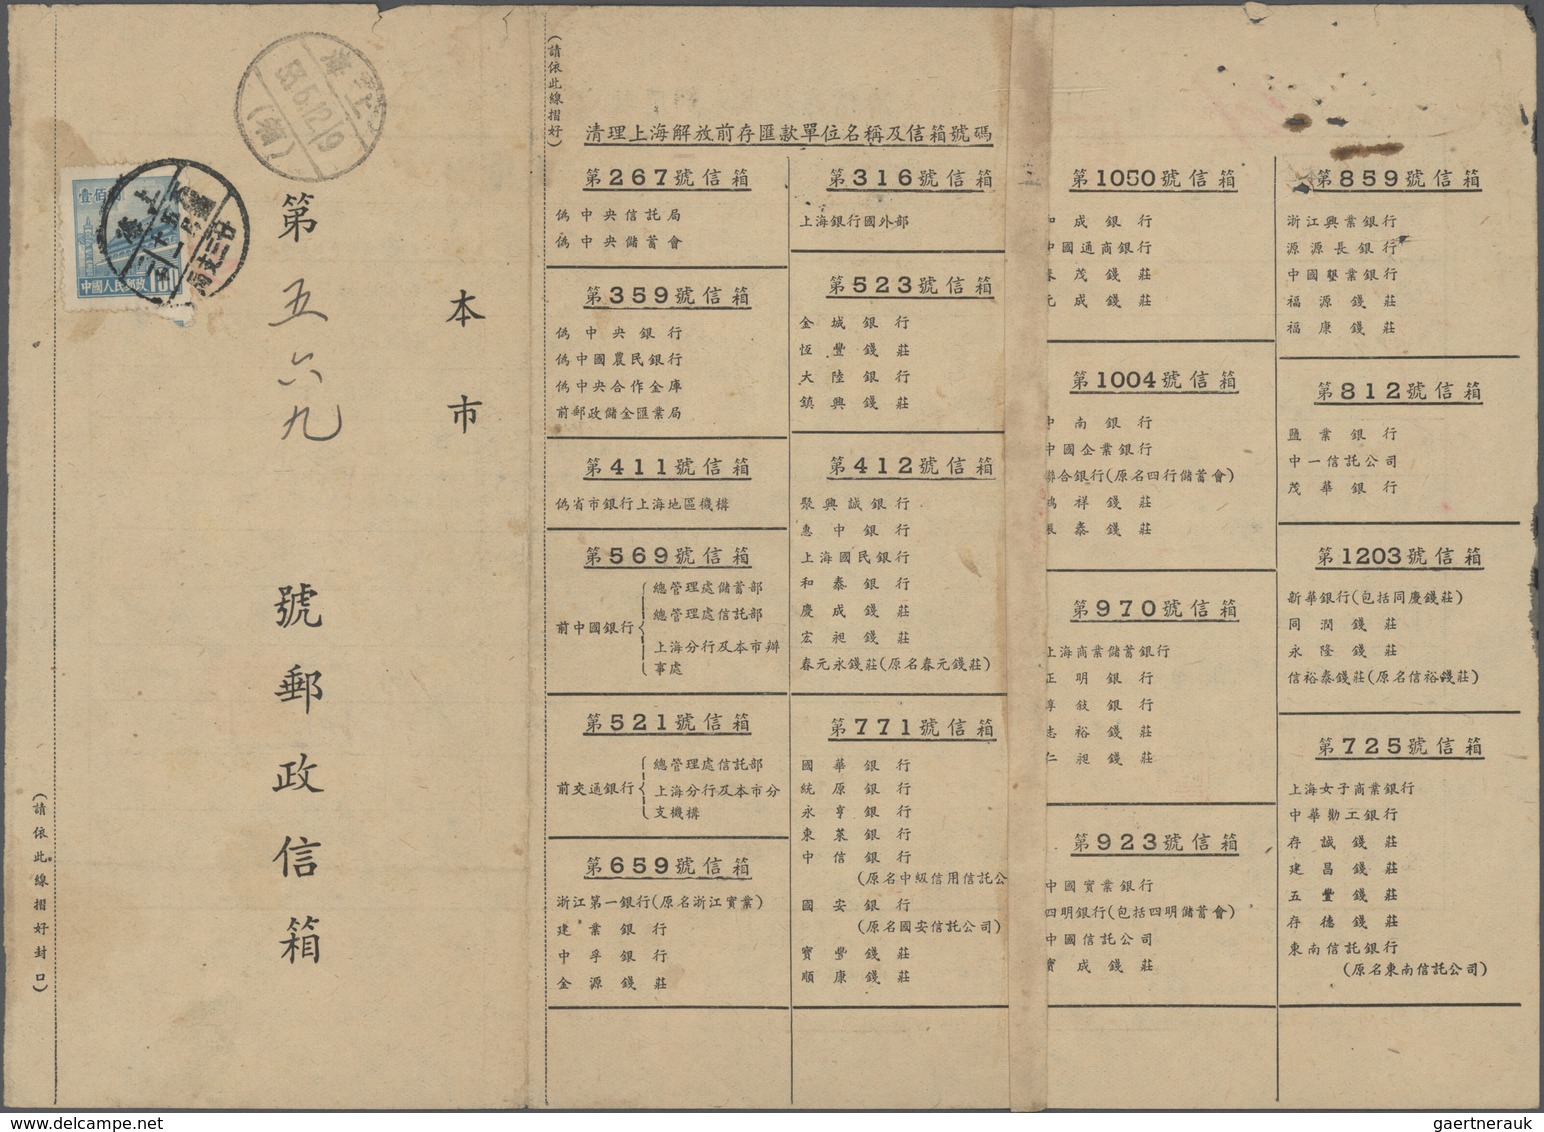 本市
第五六九號郵政信箱
(請依此線摺好封口)
中國人民郵政
上海
53.5.12.19
上海
(請依此線摺好)
清理上海解放前存匯款單位名稱及信箱號碼
第267號信箱
偽中央信託局
偽中央儲蓄會
第359號信箱
偽中央銀行
偽中國農民銀行
偽中央合作金庫
前郵政儲金匯業局
第411號信箱
偽省市銀行上海地區機構
第569號信箱
前中國銀行
總管理處儲蓄部
總管理處信託部
上海分行及本市辦
事處
第521號信箱
前交通銀行
總管理處信託部
上海分行及本市分
支機構
第659號信箱
浙江第一銀行(原名浙江實業)
建業銀行
中孚銀行
金源錢莊
第316號信箱
上海銀行國外部
第523號信箱
金城銀行
恆豐錢莊
大陸銀行
鎮興錢莊
第412號信箱
聚興誠銀行
惠中銀行
上海國民銀行
和泰銀行
慶成錢莊
宏昶錢莊
春元永錢莊(原名春元錢莊)
第771號信箱
國華銀行
統原銀行
永亨銀行
東萊銀行
中信銀行
(原名中級信用信託公
國安銀行
(原名國安信託公司)
寶豐錢莊
順康錢莊
第1050號信箱
和成銀行
中國通商銀行
春茂錢莊
元成錢莊
第1004號信箱
中南銀行
中國企業銀行
聯合銀行(原名四行儲蓄會)
鴻祥錢莊
振泰錢莊
第970號信箱
上海商業儲蓄銀行
正明銀行
惇敘銀行
志裕錢莊
仁昶錢莊
第923號信箱
中國實業銀行
四明銀行(包括四明儲蓄會)
中國信託公司
寶成錢莊
第859號信箱
浙江興業銀行
源源長銀行
中國墾業銀行
福源錢莊
福康錢莊
第812號信箱
鹽業銀行
中一信託公司
茂華銀行
第1203號信箱
新華銀行(包括同慶錢莊)
同潤錢莊
永隆錢莊
信裕泰錢莊(原名信裕錢莊)
第725號信箱
上海女子商業銀行
中華勸工銀行
存誠錢莊
建昌錢莊
五豐錢莊
存德錢莊
東南信託銀行
(原名東南信託公司)
gaertnerauk